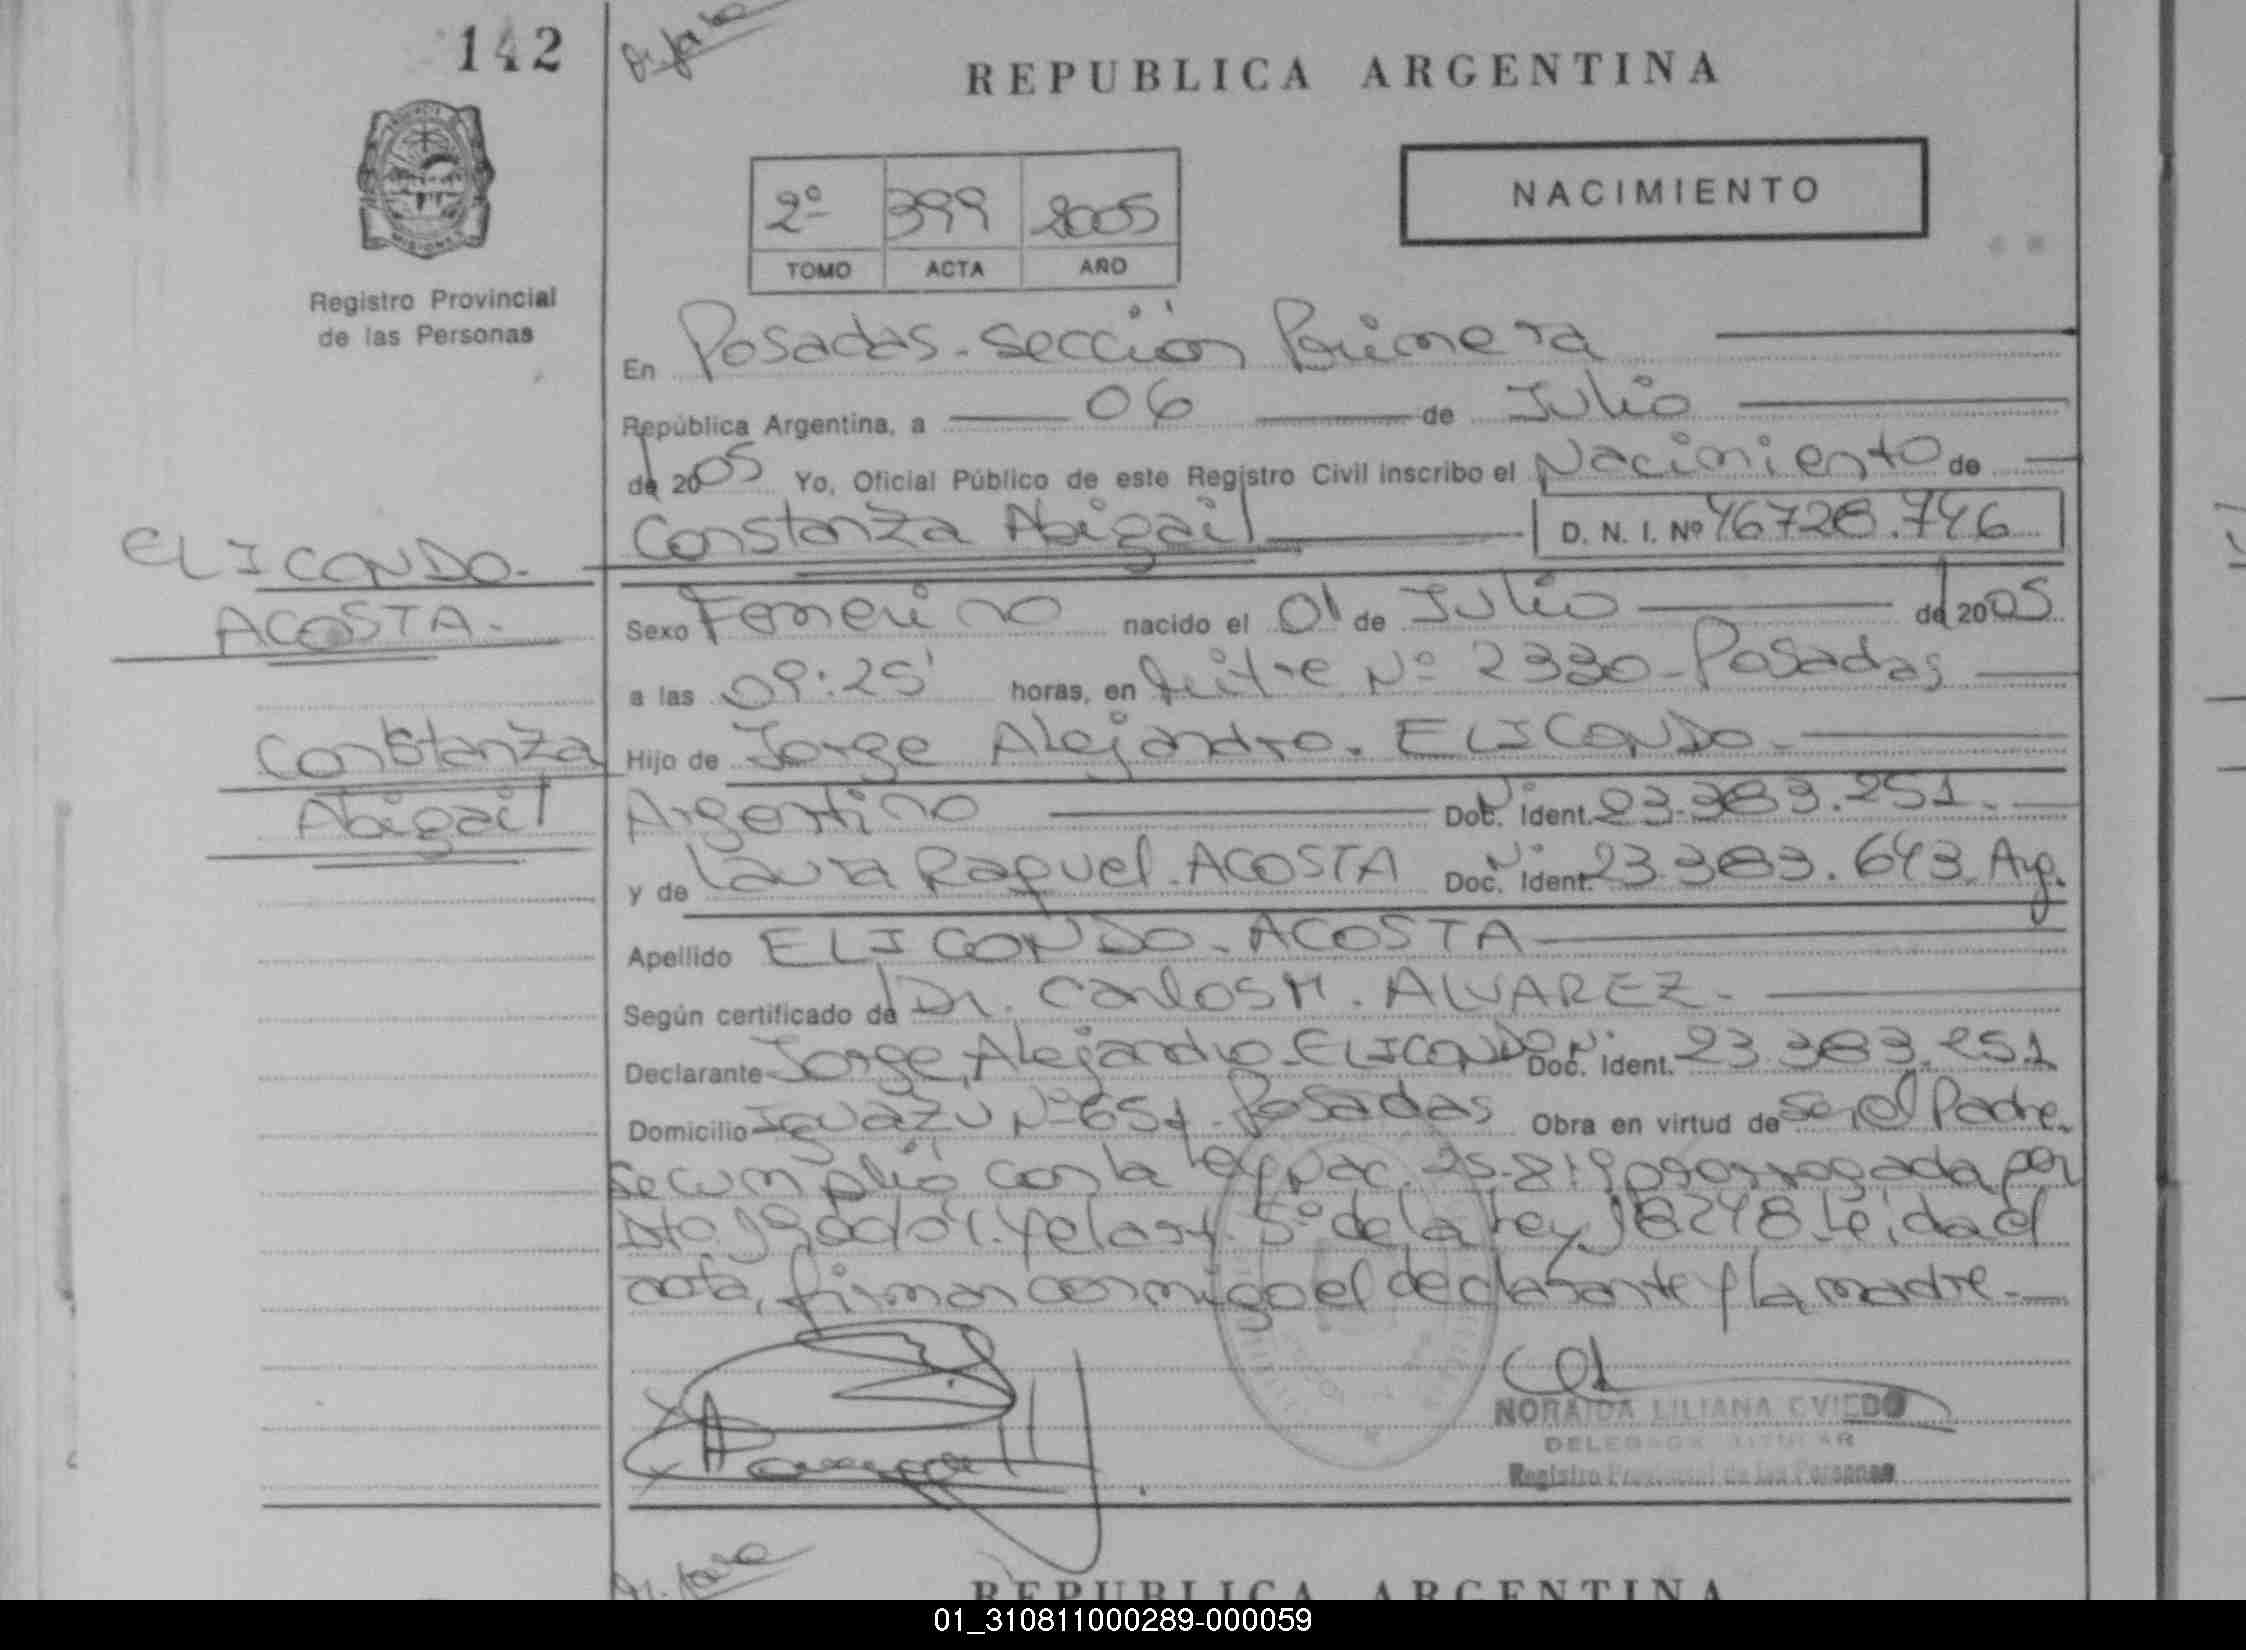 142
REPUBLICA ARGENTINA
MISIONES
Registro Provincial
de las Personas
2º 399 2005
TOMO ACTA AÑO
NACIMIENTO
En Posadas - Sección Primera
República Argentina, a 06 de Julio
de 2005 Yo, Oficial Público de este Registro Civil inscribo el Nacimiento de
Constanza Abigail D. N. I. Nº 46728.746
ELICONDO-
ACOSTA.
Constanza
Abigail
Sexo Femenino nacido el 01 de Julio de 2005
a las 09:25' horas, en Nº 2330 - Posadas
Hijo de Jorge Alejandro. ELICONDO
Argentino Doc. Ident. 23.383.251.
y de Laura Raquel. ACOSTA Doc. Ident. 23.383.643. Arg.
Apellido ELICONDO - ACOSTA
Según certificado de Dr. Carlos M. ALVAREZ.
Declarante Jorge Alejandro ELICONDO Doc. Ident. 23.383.251
Domicilio Iguazú Nº 651 - Posadas Obra en virtud de ser el Padre.
Se cumplió con la Ley Nac. 25.819 por
Dto. y el art. 5º de la Ley 18248. Leida el
acta, firman conmigo el declarante y la madre.-
NORAIDA LILIANA OVIEDO
DELEGADA TITULAR
Registro Provincial de las Personas
REPUBLICA ARGENTINA
01_310811000289-000059